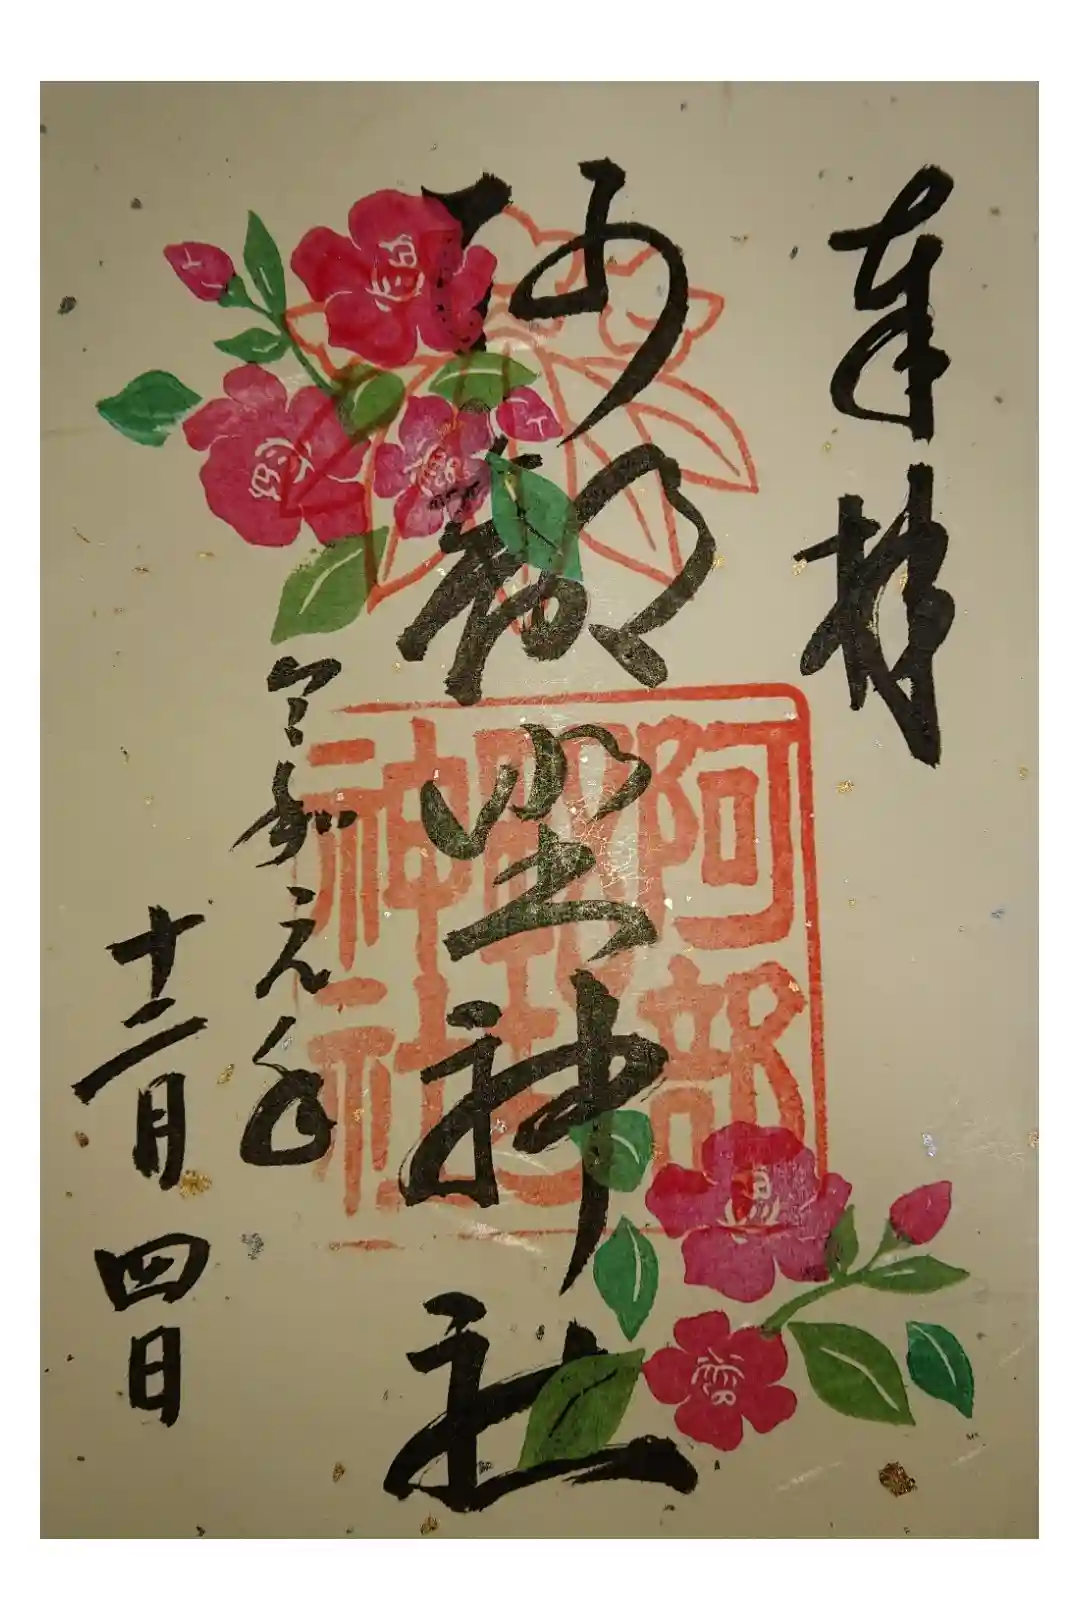 奉拝
阿部野神社
令和元年
十二月四日
阿部野神社